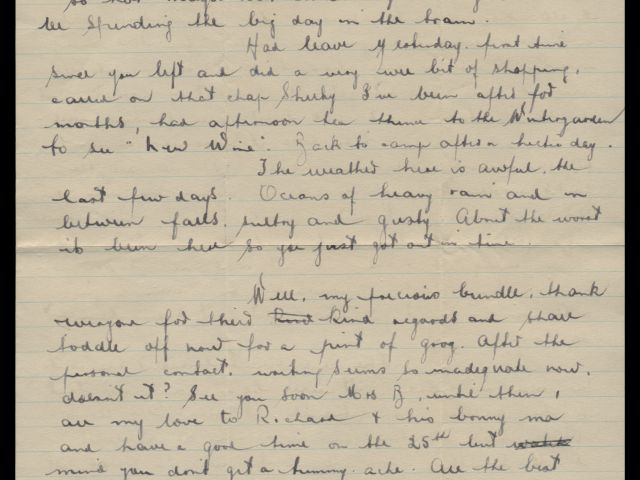 be spending the big day in the train.
Had leave yesterday. first time
since you left and did a very wee bit of shopping,
called on that chap I've been after for
months, had afternoon tea then to the Wintergarden
to see "New Wine". Back to camp after a hectic day.
The weather here is awful, the
last few days. Oceans of heavy rain and in
between falls, sultry and gusty. About the worst
its been here so you just got out in time.
Well, my precious bundle, thank
everyone for their kind kind regards and shall
toddle off now for a pint of grog. After the
personal contact, writing seems so inadequate now,
doesn't it? See you soon Mrs B, until then,
all my love to Richard & his bonny ma
and have a good time on the 25th but
mind you don't get a tummy ache. All the best